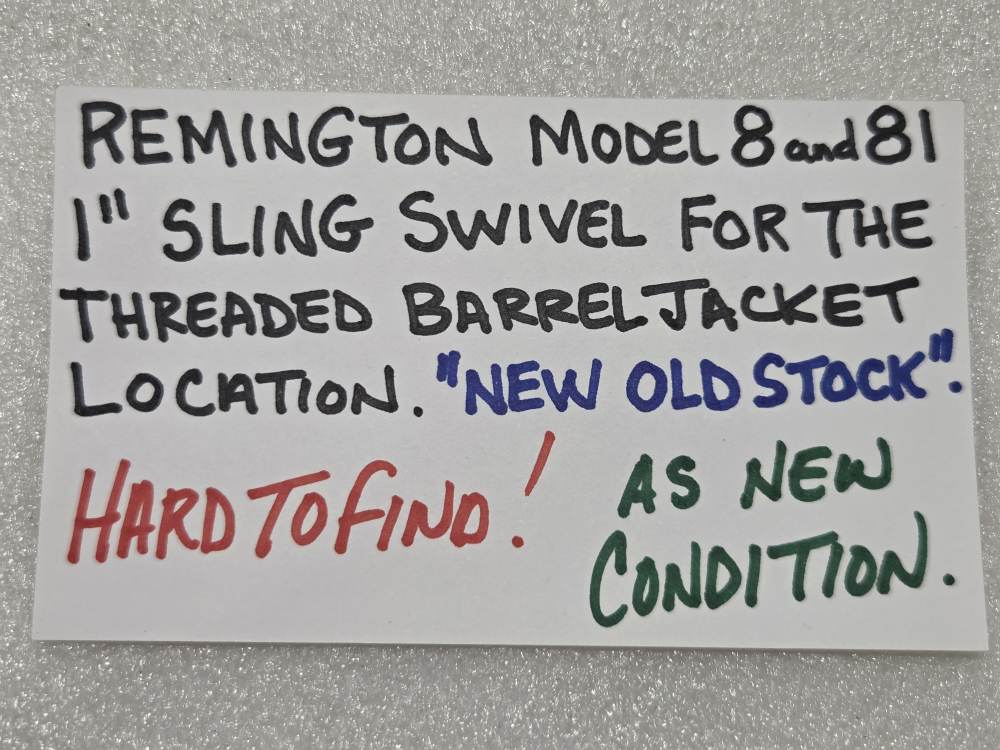 REMINGTON MODEL 8 and 81
1" SLING SWIVEL FOR THE
THREADED BARREL JACKET
LOCATION. "NEW OLD STOCK".
HARD TO FIND! AS NEW
CONDITION.